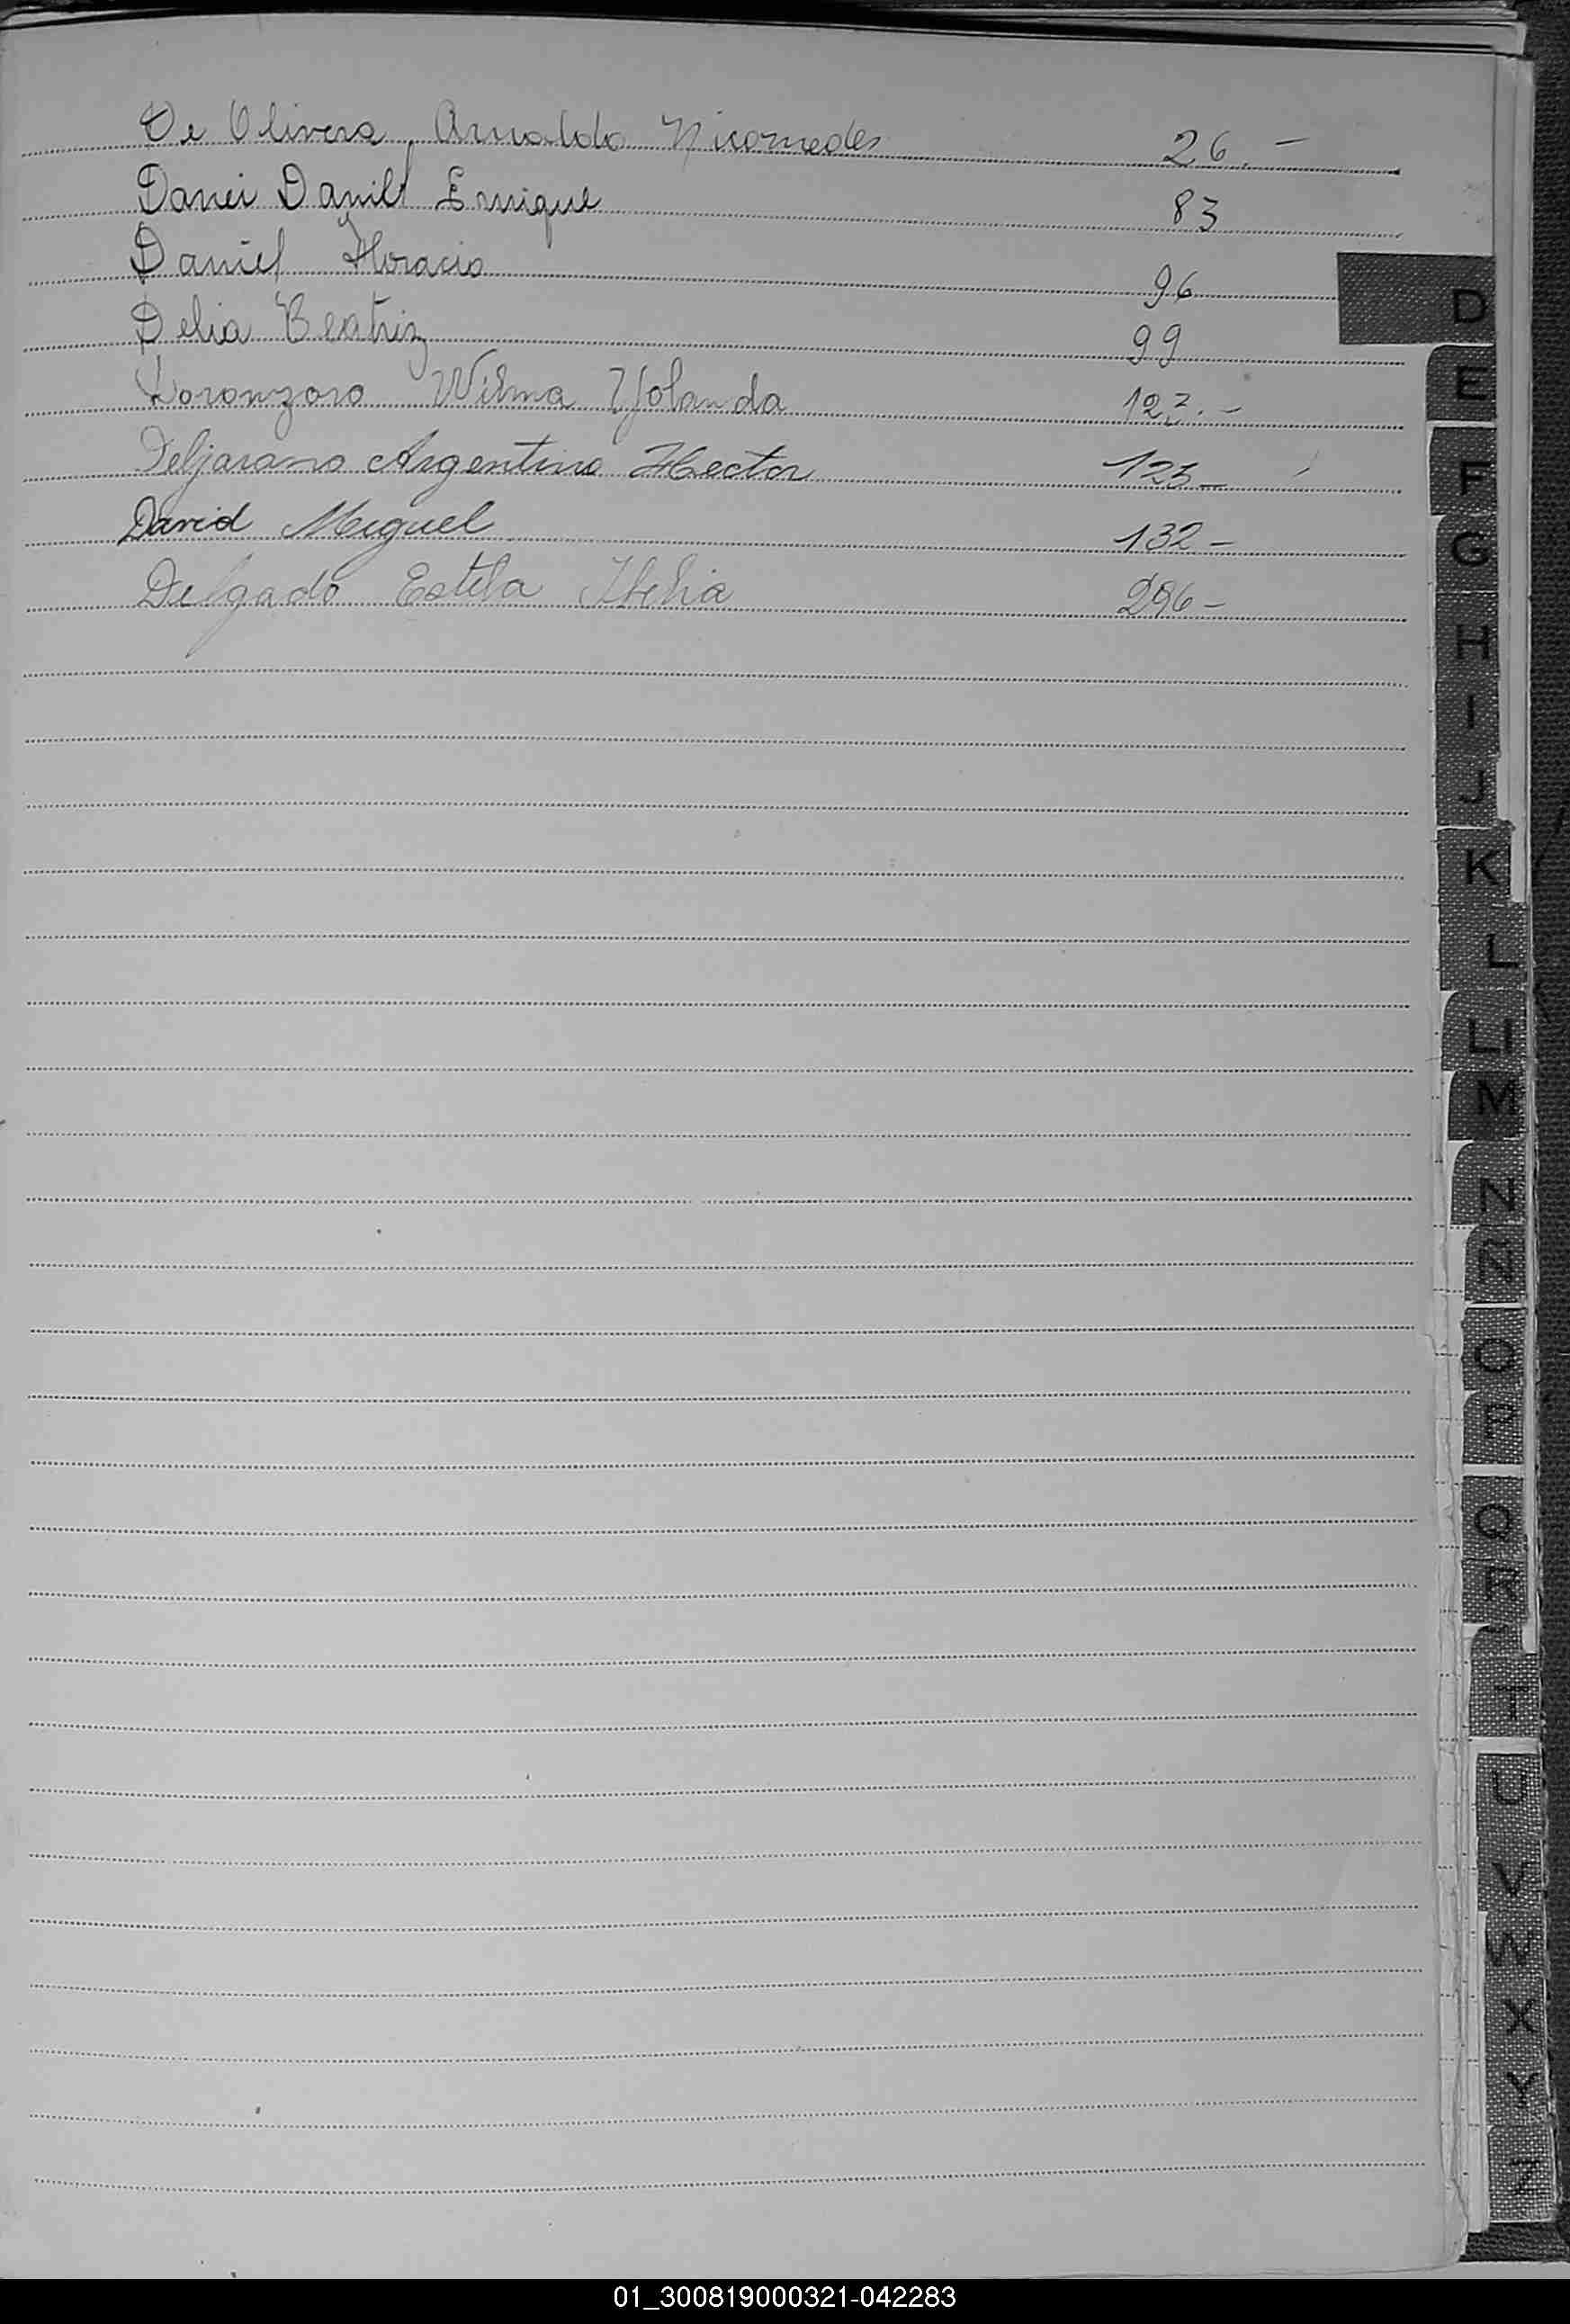 De Olivera Arnaldo Nicomedes 26.-
Danei Daniel Enrique 83
Daniel Horacio 96
Delia Beatriz 99
Doronzoro Wilma Yolanda 127.-
Deljarano Argentino Hector 125-
David Miguel 132-
Delgado Estela 296-
D
E
F
G
H
I
J
K
L
LL
M
N
Ñ
O
P
Q
R
T
U
V
W
X
Y
Z
01_300819000321-042283